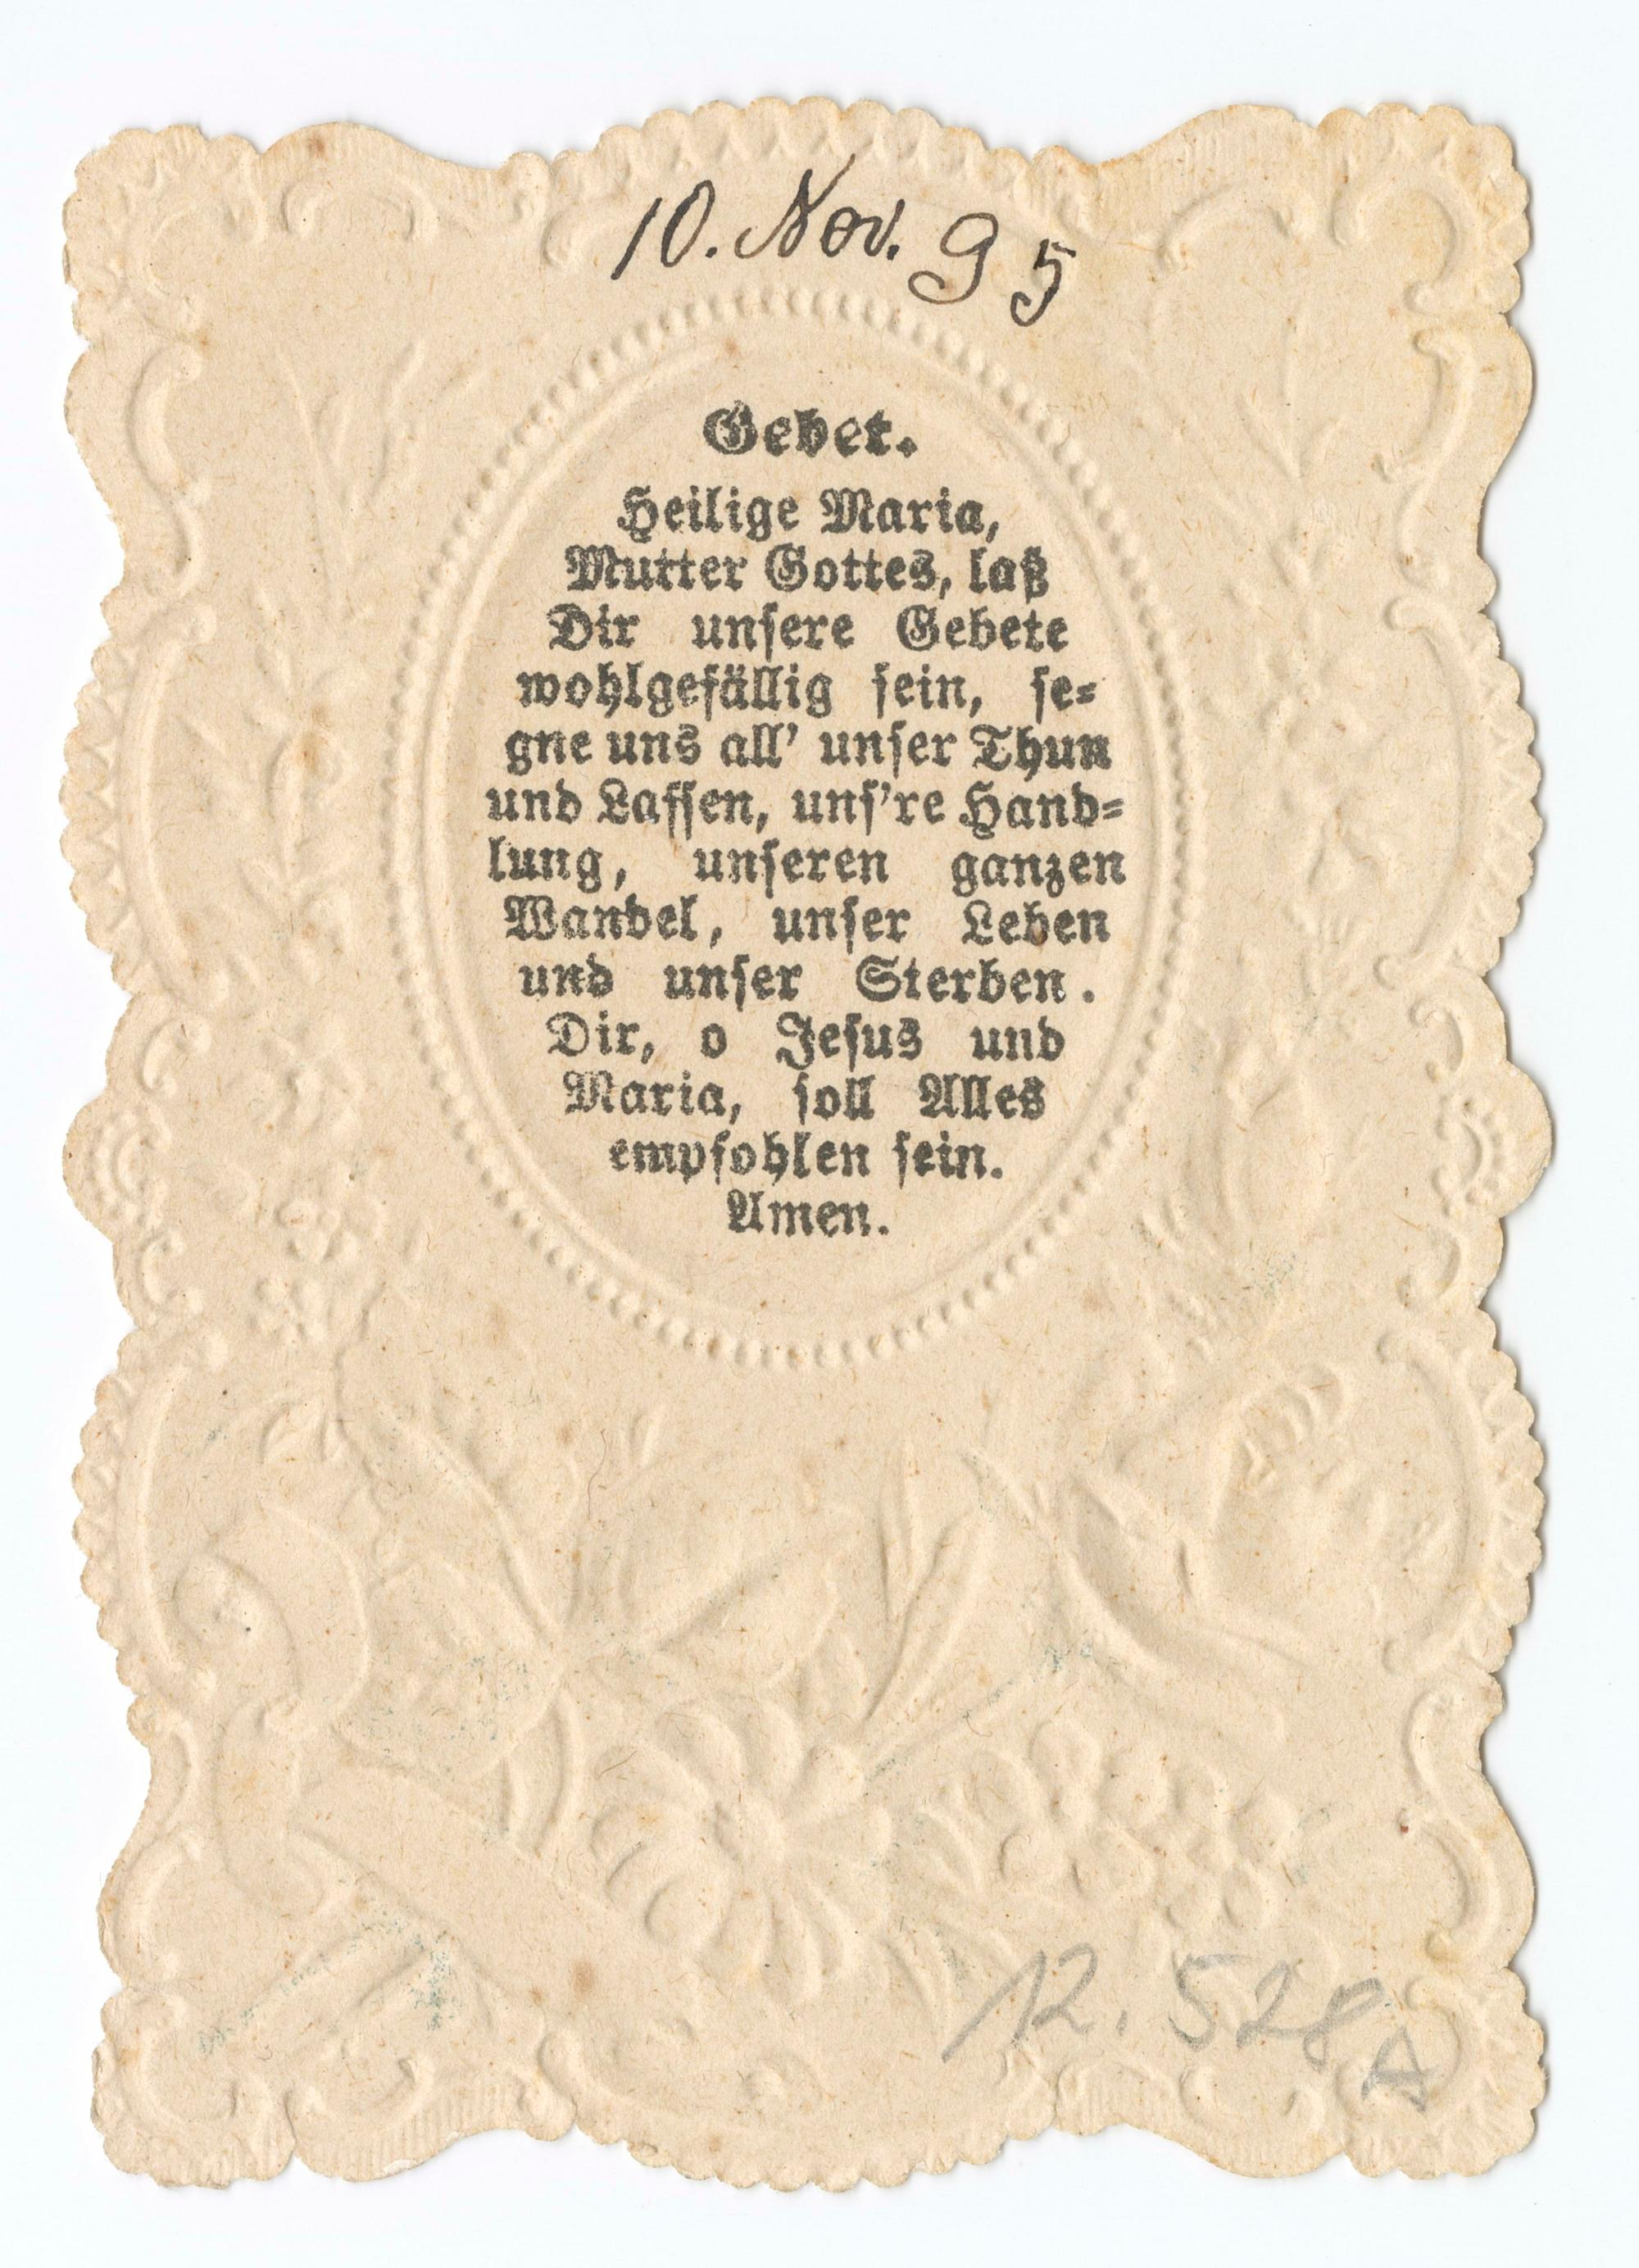 10. Nov. 95
Gebet.
Heilige Maria,
Mutter Gottes, laß
Dir unsere Gebete
wohlgefällig sein, se=
gne uns all' unser Thun
und Lassen, uns're Hand=
lung, unseren ganzen
Wandel, unser Leben
und unser Sterben.
Dir, o Jesus und
Maria, soll Alles
empfohlen sein.
Amen.
12.528 A